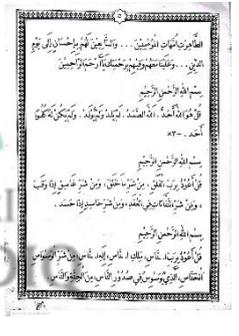 ٥
الطَّاهِرَاتِ أُمَّهَاتِ الْمُؤْمِنِيْنَ ... وَالتَّابِعِيْنَ لَهُمْ بِإِحْسَانٍ إِلَى يَوْمِ
الدِّيْنِ ... وَعَلَيْنَا مَعَهُمْ وَفِيْهِمْ بِرَحْمَتِكَ يَا أَرْحَمَ الرَّاحِمِيْنَ
بِسْمِ اللهِ الرَّحْمٰنِ الرَّحِيْمِ
قُلْ هُوَ اللهُ أَحَدٌ ، اَللهُ الصَّمَدُ ، لَمْ يَلِدْ وَلَمْ يُوْلَدْ ، وَلَمْ يَكُنْ لَهُ كُفُوًا
أَحَد . -٣×
بِسْمِ اللهِ الرَّحْمٰنِ الرَّحِيْمِ
قُلْ أَعُوْذُ بِرَبِّ الْفَلَقِ ، مِنْ شَرِّ مَا خَلَقَ ، وَمِنْ شَرِّ غَاسِقٍ إِذَا وَقَبَ
، وَمِنْ شَرِّ النَّفَّاثَاتِ فِى الْعُقَدِ ، وَمِنْ شَرِّ حَاسِدٍ إِذَا حَسَدَ .
بِسْمِ اللهِ الرَّحْمٰنِ الرَّحِيْمِ
قُلْ أَعُوْذُ بِرَبِّ النَّاسِ ، مَلِكِ النَّاسِ ، إِلٰهِ النَّاسِ ، مِنْ شَرِّ الْوَسْوَاسِ
الْخَنَّاسِ ، الَّذِيْ يُوَسْوِسُ فِيْ صُدُوْرِ النَّاسِ ، مِنَ الْجِنَّةِ وَالنَّاسِ .